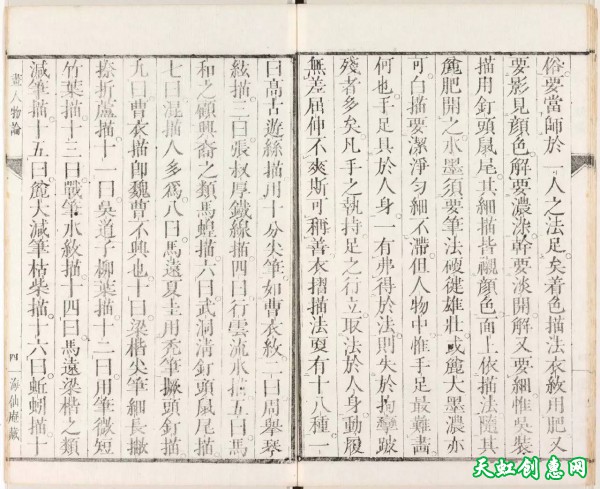 俗要當師於一人之法足矣着色描法衣紋用肥又
要影見顏色解要濃染幹要淡開解又要細惟吳裝
描用釘頭鼠尾其細描皆襯顏色面上依描法隨其
麄肥開之水墨須要筆法硬健雄壯或麄大墨濃亦
可白描要潔淨勻細不滯但人物中惟手足最難畵
何也手足具於人身一有弗得於法則失於拘攣跛
殘者多矣凡手之執持足之行立取法於人身動履
無差屈伸不爽斯可稱善衣摺描法更有十八種一
曰高古遊絲描用十分尖筆如曹衣紋二曰周舉琴
絃描三曰張叔厚鐵線描四曰行雲流水描五曰馬
和之顧興裔之類馬蝗描六曰武洞清釘頭鼠尾描
七曰混描人多爲八曰馬遠夏圭用禿筆撅頭釘描
九曰曹衣描卽魏曹不興也十曰梁楷尖筆細長撇
捺折蘆描十一曰吳道子柳葉描十二曰用筆微短
竹葉描十三曰戰筆水紋描十四曰馬遠梁楷之類
減筆描十五曰麄大減筆枯柴描十六曰蚯蚓描十
畫人物論
四
海仙庵藏
天虹创意网